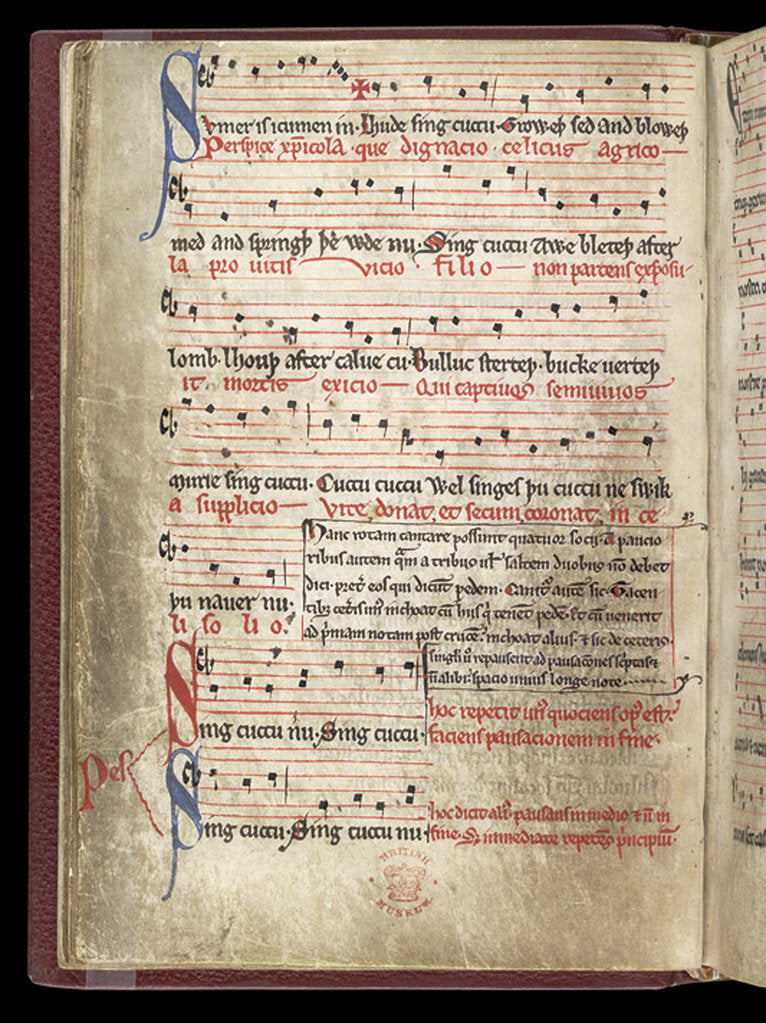 Sumer is icumen in· Lhude sing cuccu· Groweþ sed and bloweþ
Perspice xp̄icola· que dignacio celicus agrico
med and springþ þe wde nu· Sing cuccu Awe bleteþ after
la pro uitis vicio· filio non parcens exposu
lomb· lhouþ after calue cu· Bulluc sterteþ· bucke uerteþ
it mortis exicio Qui captiuos semiuiuos
murie sing cuccu· Cuccu cuccu Wel singes þu cuccu ne swik
a supplicio Vite donat, et secum coronat, in ce
þu nauer nu·
li so li o·
Hanc rotam cantare possunt quatuor socij· A paucio
ribus autem q̄m a tribus ul' saltem duobus non debet
dici· pret' eos qui dicūt pedem· Canit' aūt sic· Tacen
tibȝ ceteris un' inchoat cū hiis q' tenēt pedē· Et cū uenerit
ad p'mam notam post crucē· inchoat alius· et sic de ceteris·
singli u' repausent ad pausacōnes sc'ptas et
n̄ alibi· spacio unius longe note
Sing cuccu nu· Sing cuccu·
hoc repetit un' quociens op' est·
faciens pausacionem in fine·
Pes
Sing cuccu· Sing cuccu nu
hoc dicit ali'· pausans in medio et n̄ in
fine· S; inmediate repetēs p'ncipiū·
BRITISH
MUSEUM